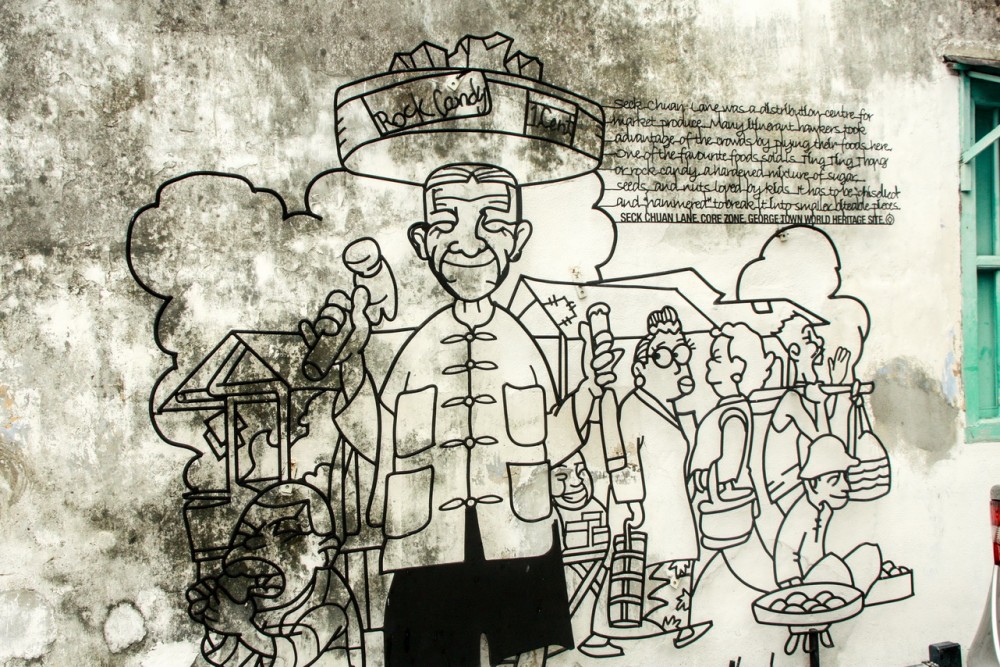 Rock Candy
1 Cent
Seck Chuan Lane was a distribution centre for
market produce. Many itinerant hawkers took
advantage of the crowds by plying their foods here.
One of the favourite foods sold is Ting Ting Thong
or rock candy, a hardened mixture of sugar,
seeds, and nuts loved by kids. It has to be "chiselled
and hammered" to break it into smaller biteable pieces.
SECK CHUAN LANE, CORE ZONE, GEORGE TOWN WORLD HERITAGE SITE. ©